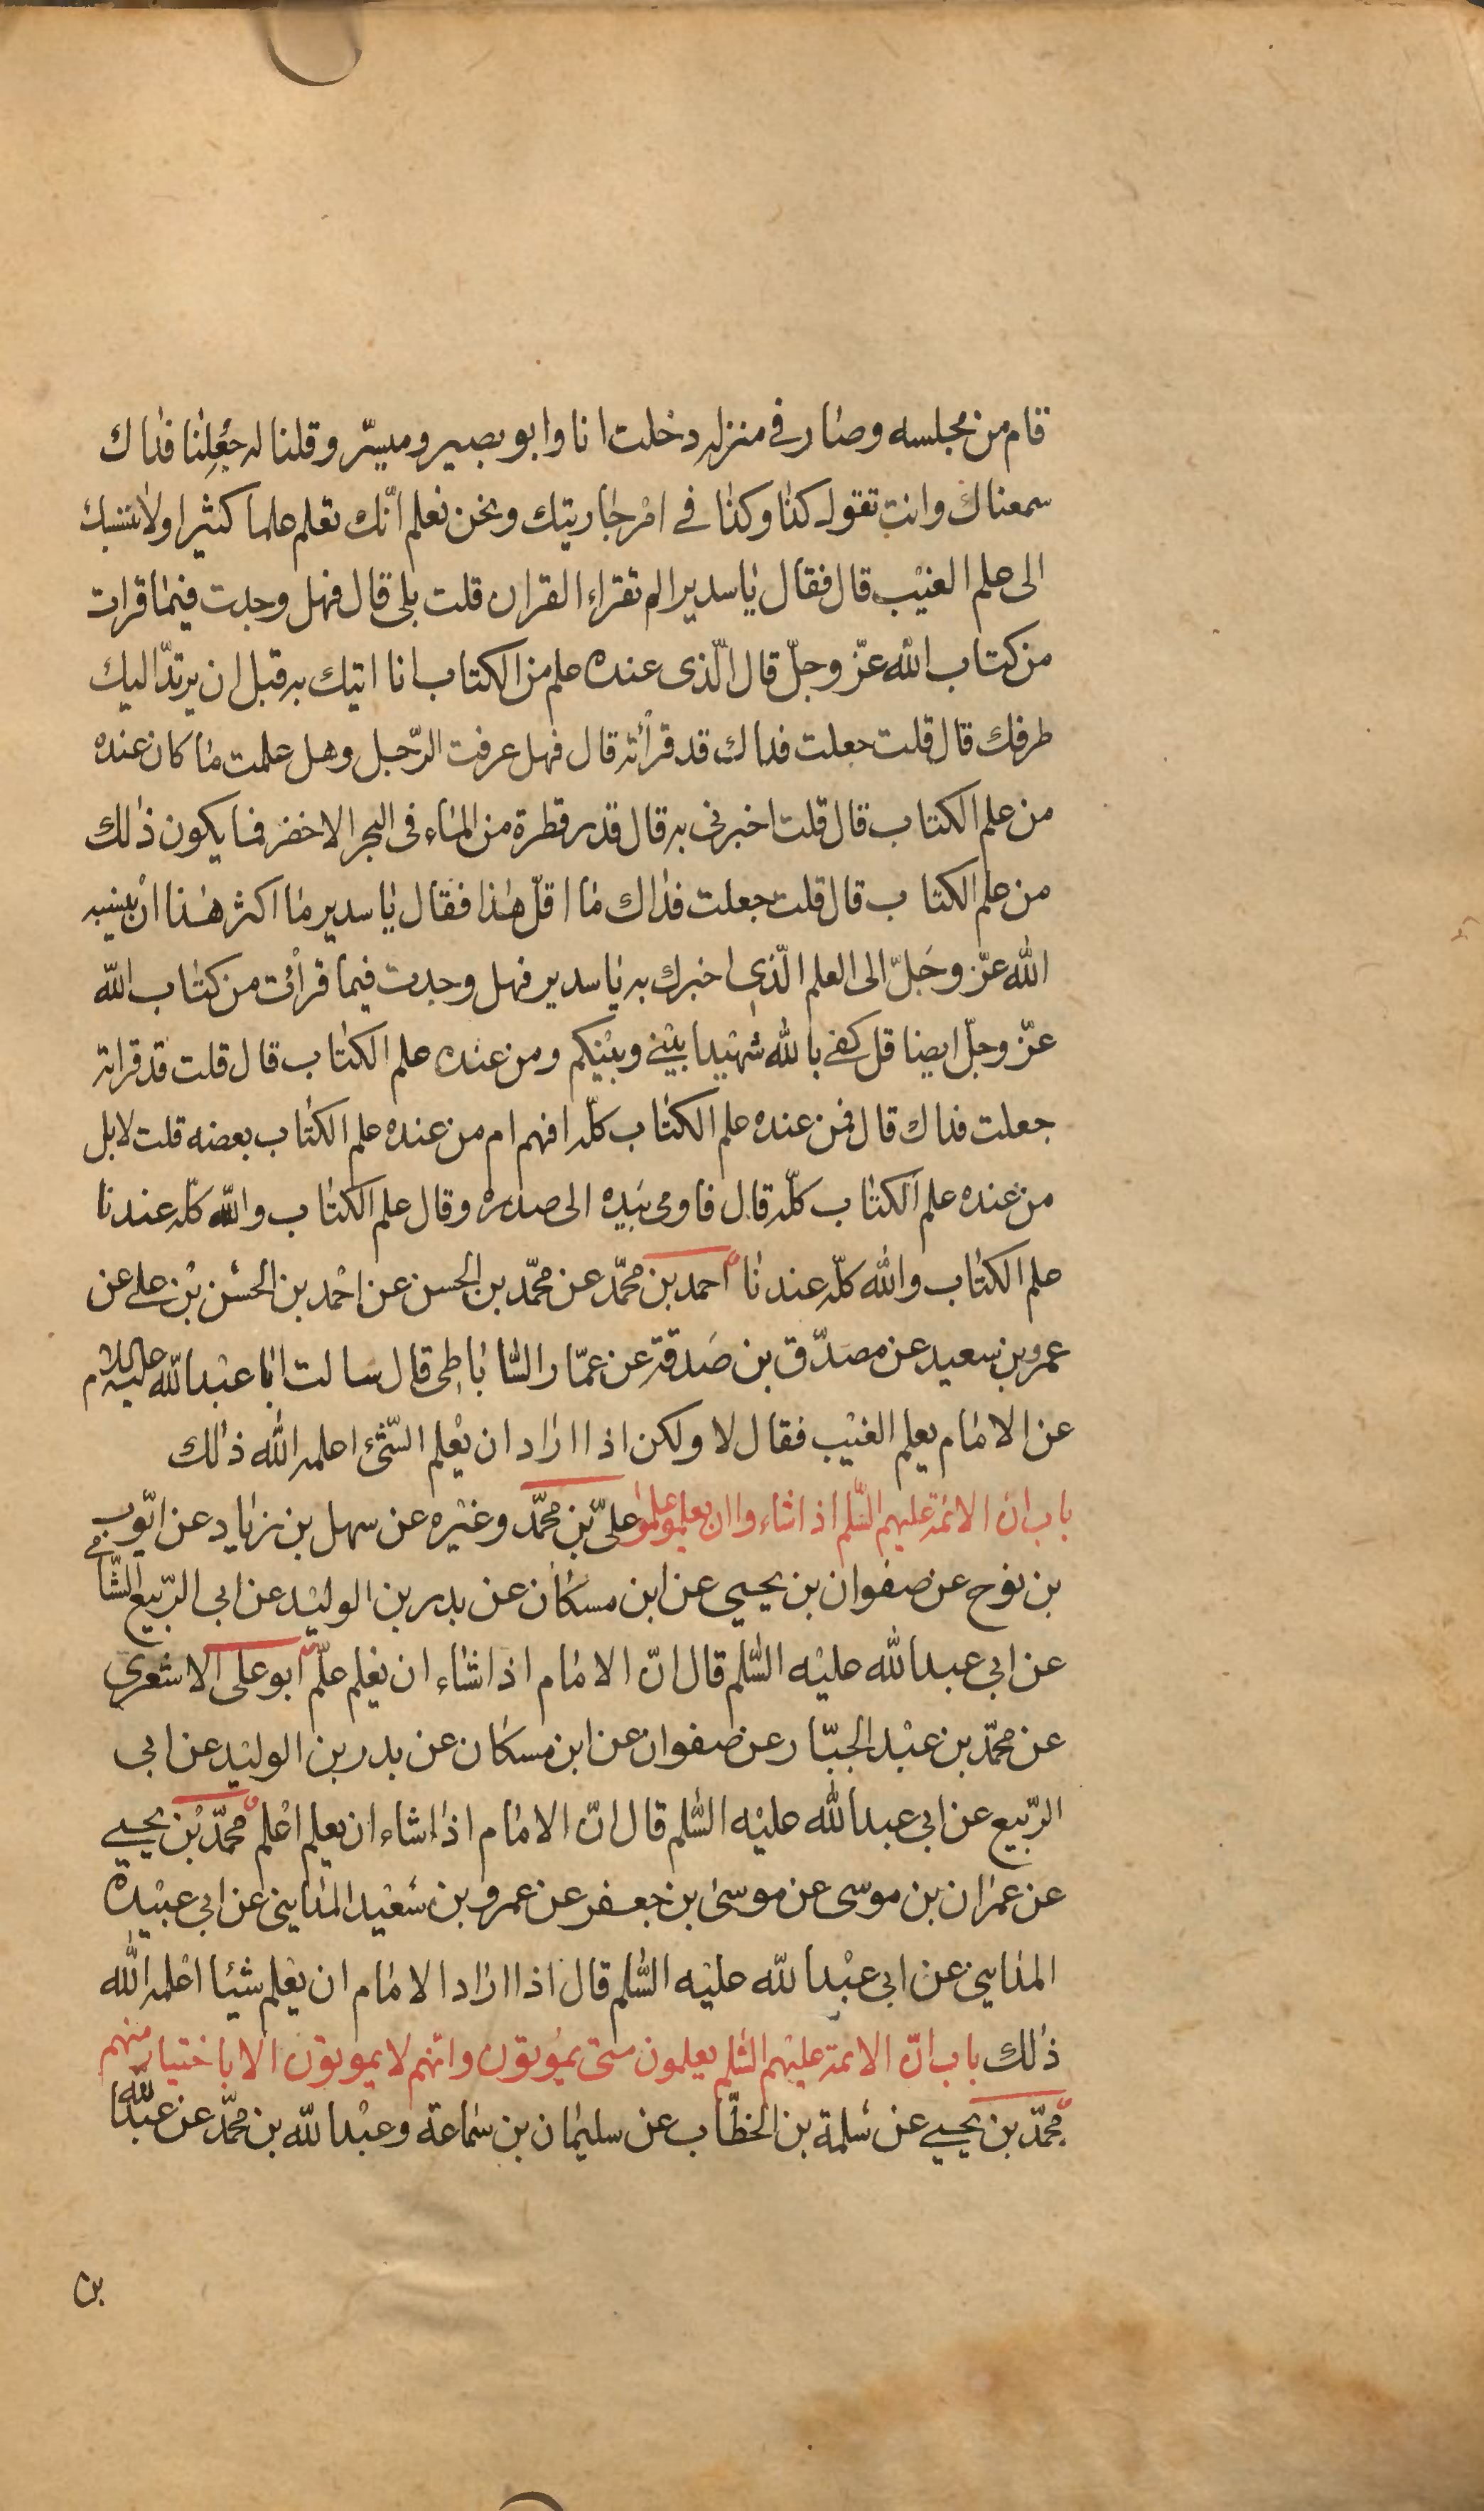 قام من مجلسه وصار في منزله دخلت انا وابو بصير وميسّر وقلنا له جُعِلنا فداك
سمعناك وانت تقول كذا وكذا في امر جاريتك ونحن نعلم انّك تعلم علما كثيرا ولا ننسبك
الى علم الغيب قال فقال يا سدير الم تقراء القران قلت بلى قال فهل وجدت فيما قرات
من كتاب الله عزّ وجلّ قال الّذى عنده علم من الكتاب انا اتيك به قبل ان يرتدّ اليك
طرفك قال قلت جعلت فداك قد قرأته قال فهل عرفت الرّجل وهل علمت ما كان عنده
من علم الكتاب قال قلت اخبرني به قال قدر قطرة من الماء فى البحر الاخضر فما يكون ذلك
من علم الكتاب قال قلت جعلت فداك ما اقلّ هذا فقال يا سدير ما اكثر هذا ان ينسبه
الله عزّ وجَلّ الى العلم الّذي اخبرك به يا سدير فهل وجدت فيما قرأت من كتاب الله
عزّ وجلّ ايضا قل كفى بالله شهيدا بينى وبينكم ومن عنده علم الكتاب قال قلت قد قراته
جعلت فداك قال فمن عنده علم الكتاب كلّه افهم ام من عنده علم الكتاب بعضه قلت لا بل
من عنده علم الكتاب كلّه قال فاومى بيده الى صدره وقال علم الكتاب والله كلّه عندنا
علم الكتاب والله كلّه عندنا احمد بن محمّد عن محمّد بن الحسن عن احمد بن الحسن بن على عن
عمرو بن سعيد عن مصدّق بن صَدقة عن عمّار السّاباطى قال سالت ابا عبد الله عليه السلام
عن الامام يعلم الغيب فقال لا ولكن اذا اراد ان يعلم الشّئ اعلمه الله ذلك
باب ان الائمة عليهم السّلم اذا شاءوا ان يعلموا علموا علىّ بن محمّد وغيره عن سهل بن زياد عن ايّوب
بن نوح عن صفوان بن يحيى عن ابن مسكان عن بدر بن الوليد عن ابى الرّبيع الشّامى
عن ابي عبد الله عليه السّلم قال انّ الامام اذا شاء ان يعلم علّم ابو على الاشعري
عن محمّد بن عبد الجبّار عن صفوان عن ابن مسكان عن بدر بن الوليد عن ابى
الرّبيع عن ابى عبد الله عليه السّلم قال انّ الامام اذا شاء ان يعلم اعلم محمّد بن يحيى
عن عمران بن موسى عن موسى بن جعفر عن عمرو بن سعيد المدايني عن ابى عبيدة
المدايني عن ابى عبد الله عليه السّلم قال اذا اراد الامام ان يعلم شيئا اعلمه الله
ذلك باب انّ الائمة عليهم السّلم يعلمون متى يموتون وانّهم لا يموتون الا باختيار منهم
محمّد بن يحيى عن سلمة بن الخطّاب عن سليمان بن سماعة وعبد الله بن محمّد عن عبد الله
بن